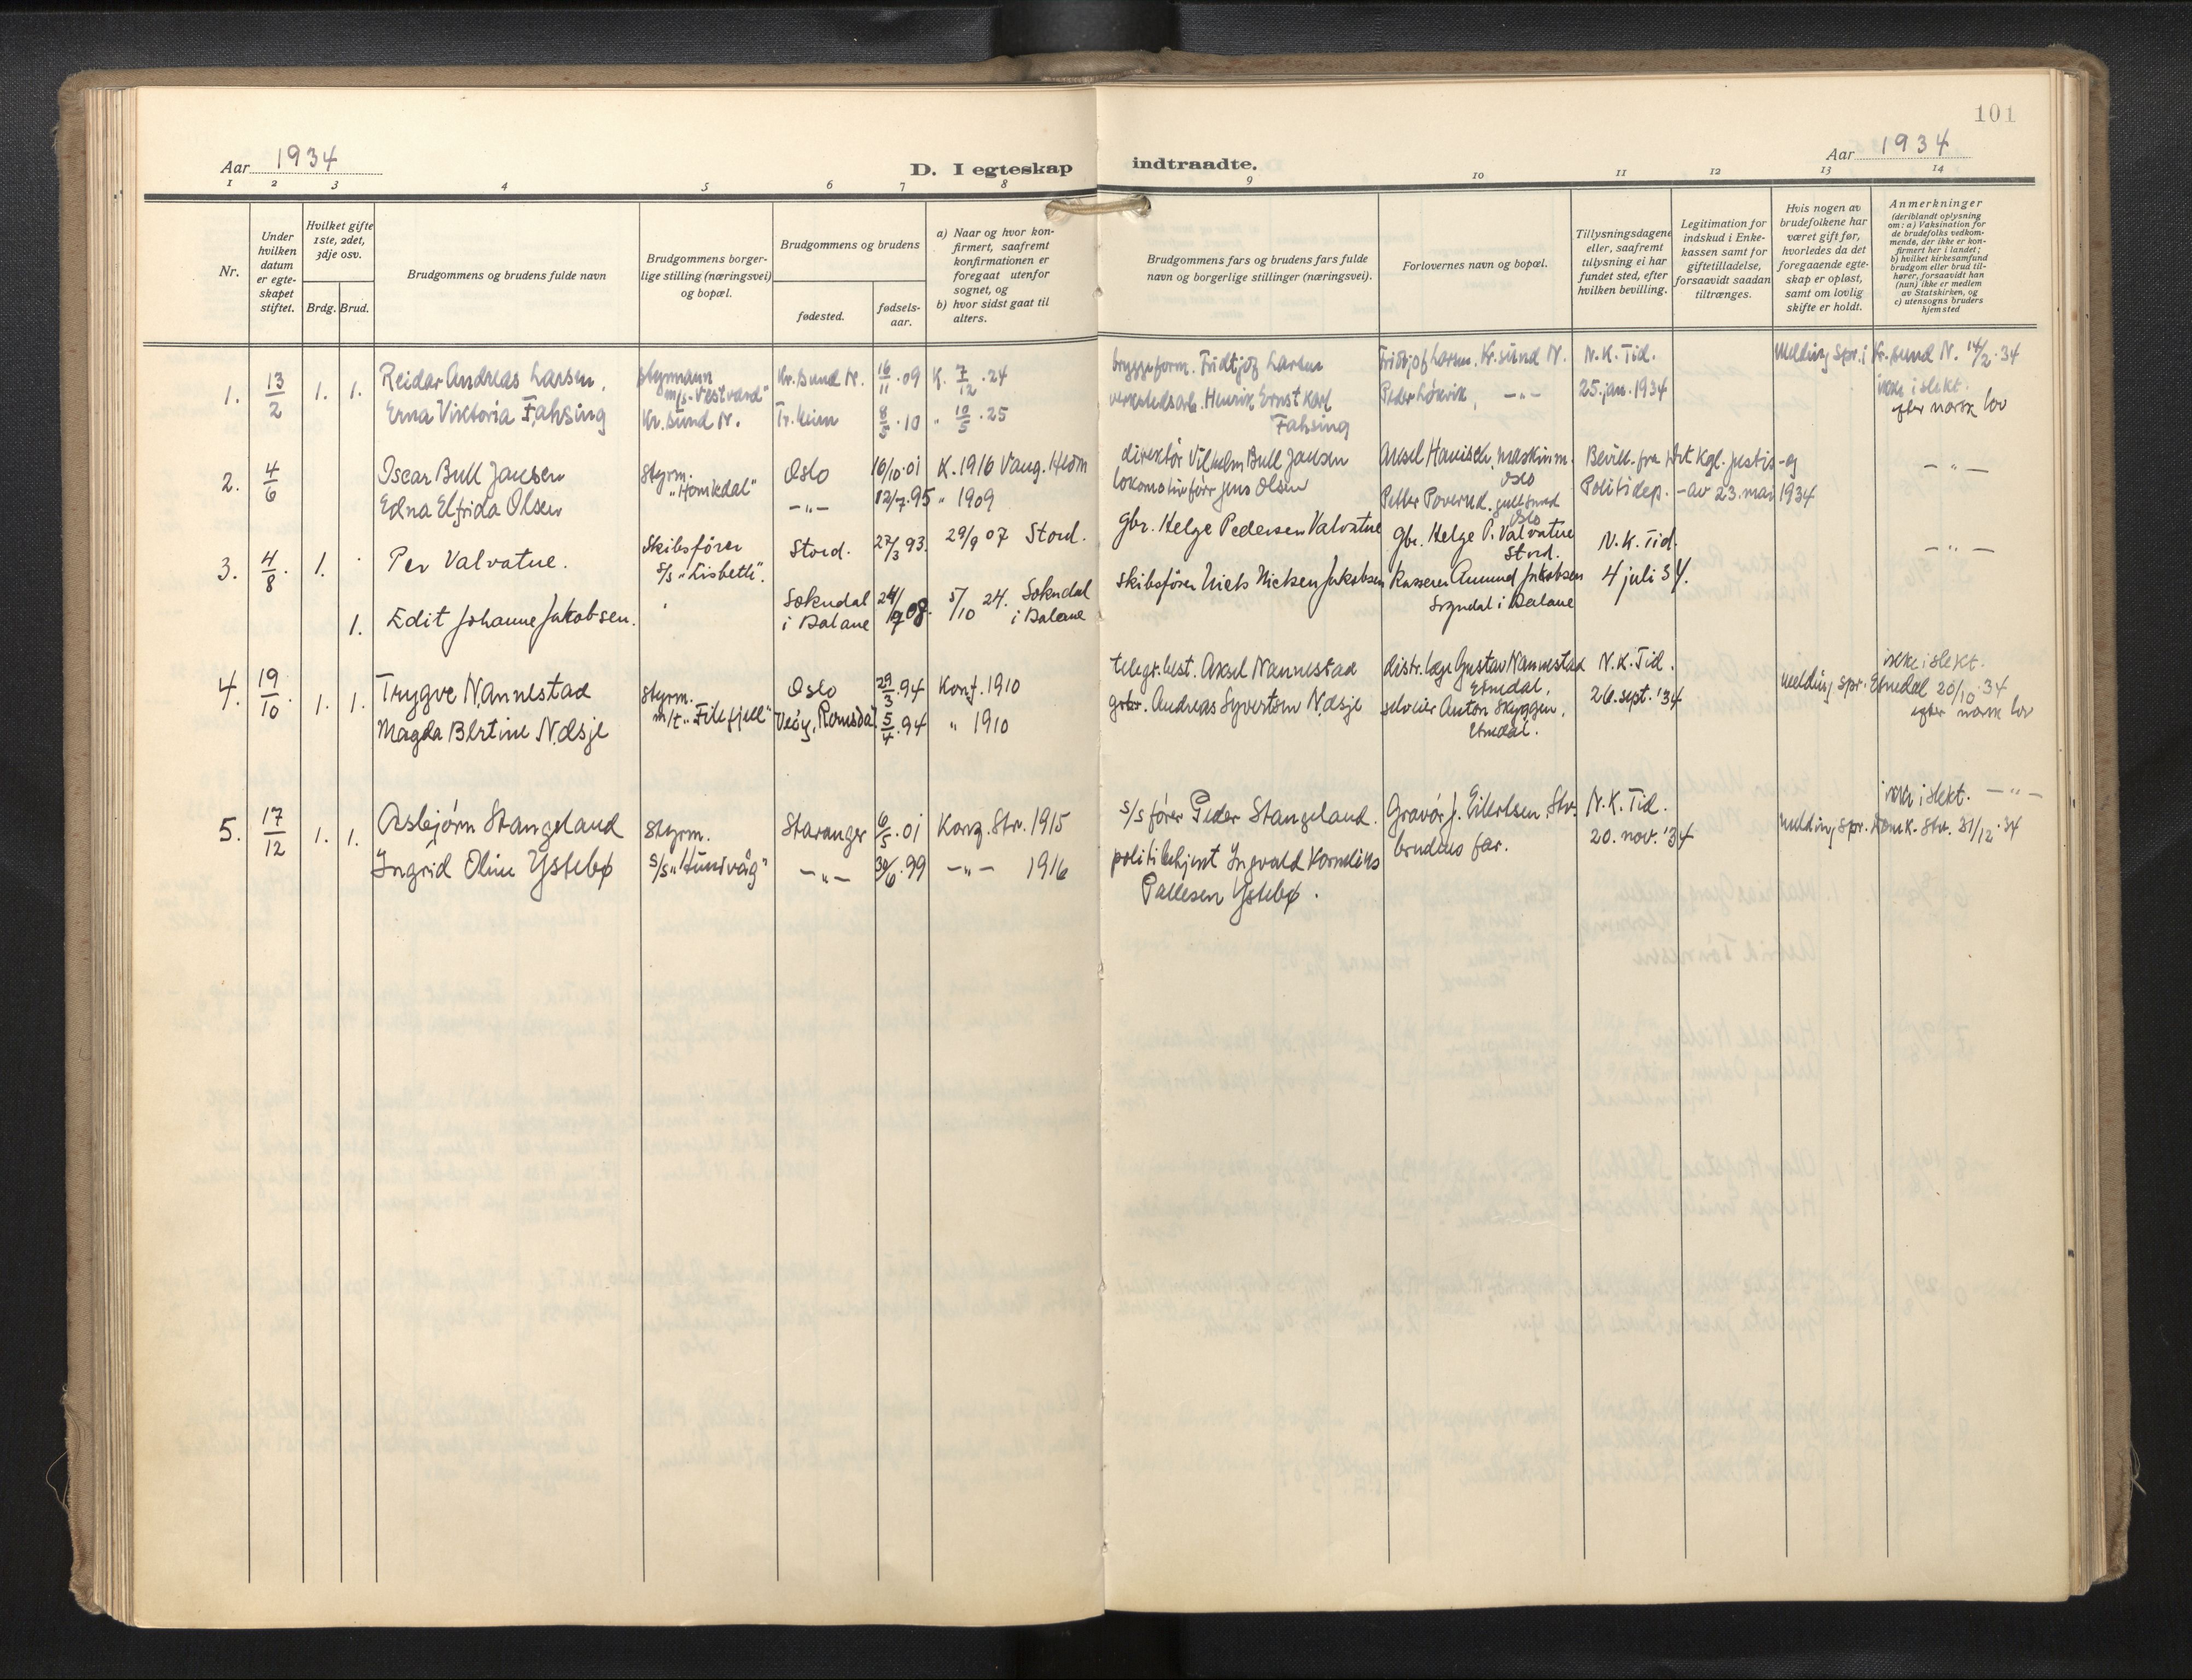 101
Aar 1934
D. I egteskap indtraadte.
Aar 1934
1 2 3 4 5 6 7 8 9 10 11 12 13 14
Nr.
Under hvilken datum er egte-skapet stiftet.
Hvilket gifte 1ste, 2det, 3dje osv.
Brdg. Brud.
Brudgommens og brudens fulde navn
Brudgommens borger-lige stilling (næringsvei) og bopæl.
Brudgommens og brudens
fødested.
fødsels-aar.
a) Naar og hvor kon-firmert, saafremt konfirmationen er foregaat utenfor sognet, og
b) hvor sidst gaat til alters.
Brudgommens fars og brudens fars fulde navn og borgerlige stillinger (næringsvei).
Forlovernes navn og bopæl.
Tillysningsdagene eller, saafremt tillysning ei har fundet sted, efter hvilken bevilling.
Legitimation for indskud i Enke-kassen samt for giftetilladelse, forsaavidt saadan tiltrænges.
Hvis nogen av brudefolkene har været gift før, hvorledes da det foregaaende egte-skap er opløst, samt om lovlig skifte er holdt.
Anmerkninger
(deriblandt oplysning om: a) Vaksination for de brudefolks vedkom-mende, der ikke er kon-firmert her i landet; b) hvilket kirkesamfund brudgom eller brud til-hører, forsaavidt han (hun) ikke er medlem av Statskirken, og c) utensogns bruders hjemsted
1. 13/2 1. 1. Reidar Andreas Larsen. styrmann m/s "Vestvard" Kr.sund N. 16/11.09 K. 7/12.24 bryggeform. Fridtjof Larsen Fridtjof Larsen. Kr.sund N. N.K.Tid. melding spr. i Kr.sund N. 14/2.34
ikke i slekt.
Erna Viktoria Fahsing Kr.sund N. Tr.heim 8/5.10 " 10/5.25 verkstedsarb. Henrik Ernst Karl Fahsing Peder Løkvik, —"— 25.jan.1934 efter norsk lov
2. 4/6 Oscar Bull Jansen styrm. "Homkdal" Oslo 16/10.01 K.1916 Vang. Hedm direktör Vilhelm Bull Jansen Aksel Hanisch, maskinm. Oslo Bevill. fra Det kgl. Justis- og —"—
Edna Elfrida Olsen —"— 12/7.95 " 1909 lokomotivförer Jens Olsen Petter Poverud, gullsmed Oslo Politidep. - av 23.mai 1934
3. 4/8. 1. Per Valvatne. Skibsfører s/s "Lisbeth". Stord. 27/3 93. 29/9 07 Stord. Gbr. Helge Pedersen Valvatne Gbr. Helge P. Valvatne Stord. N.K.Tid. —"—
1. Edit Johanne Jakobsen. Sokndal i Dalane 24/9 08. 5/10 24. Sokndal i Dalane Skibsfører Niels Nielsen Jakobsen Kasserer Amund Jakobsen Sogndal i Dalane 4 juli 34.
4. 19/10. 1. 1. Trygve Nannestad styrm. m/t. "Filefjell" Oslo 29/3.94 Konf.1910 telegr.best. Aksel Nannestad distr.læge Gustav Nannestad Etnedal. N.K.Tid. melding spr. Etnedal 20/10.34
ikke i slekt.
Magda Bertine Nøsje Veøy, Romsdal 5/4.94 " 1910 gbr. Andreas Syvertsen Nøsje selveier Anton Skyggen, Etnedal. 26.sept.'34 efter norsk lov
5. 17/12 1. 1. Asbjörn Stangeland styrm. s/s "Hundvåg" Stavanger 6/5.01 Konf. Stv. 1915 s/s fører Peder Stangeland. Gravör J. Eilertsen, Stv. N.K.Tid. melding spr. Domk. Stv. 31/12.34
ikke i slekt. —"—
Ingrid Oline Ystebø —"— 30/6.99 —"— 1916 politibetjent Ingvald Kornelius Pallesen Ystebø. brudens far. 20.nov.'34